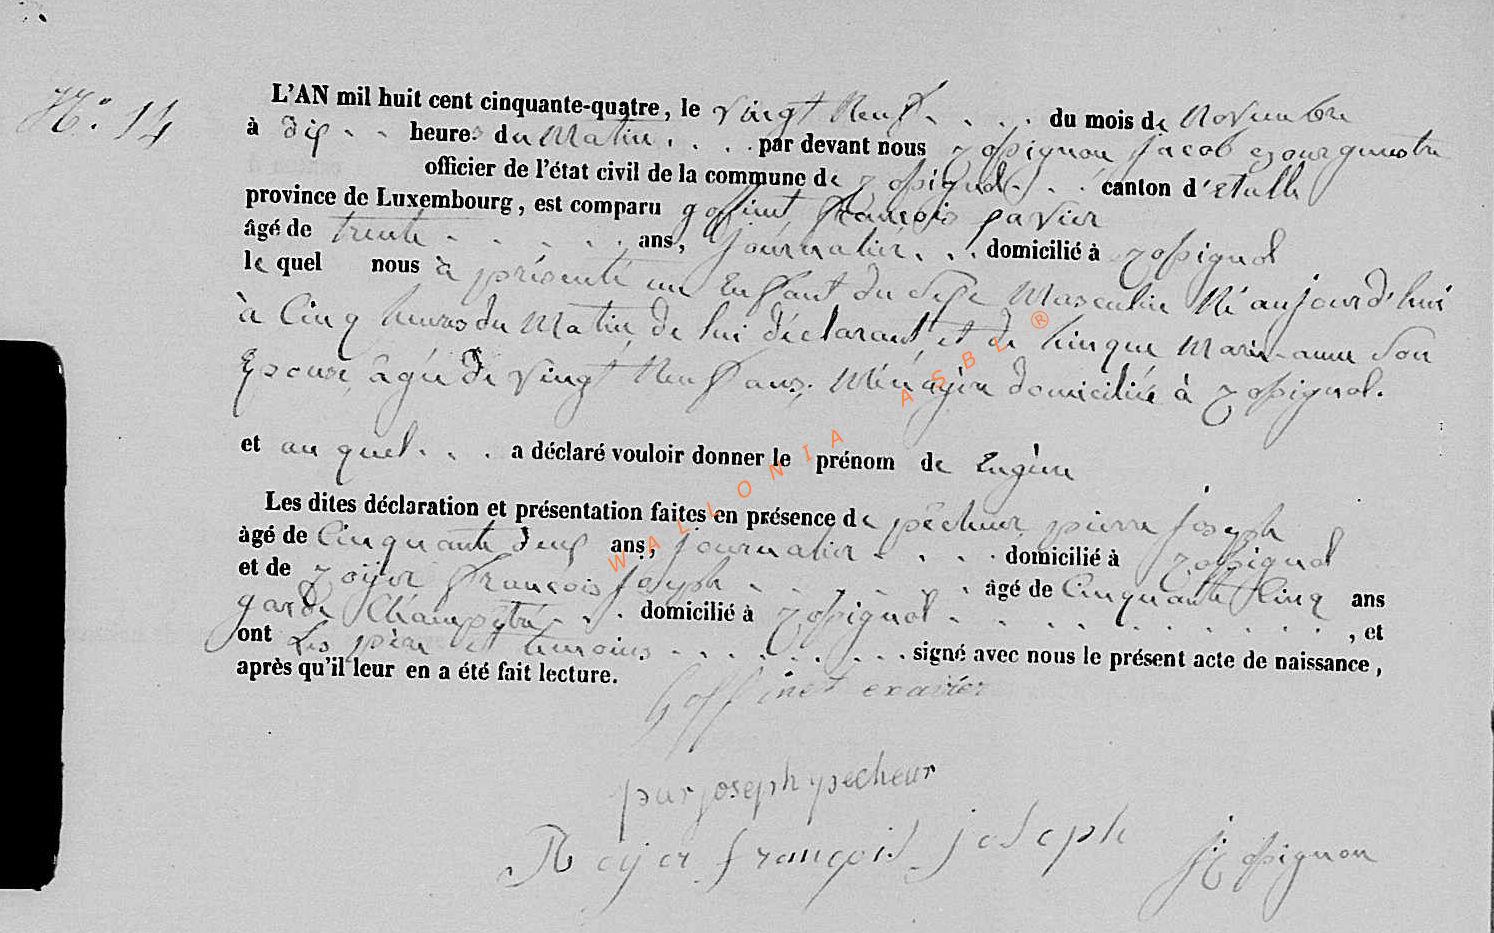 N.° 14
L'AN mil huit cent cinquante-quatre, le vingt Neuf . . . . du mois de Novembre
à dix . . heures du Matin . . . . par devant nous Rossignon Jacob Bourgmestre
officier de l'état civil de la commune de Rossignol . . . canton d'Etalle
province de Luxembourg, est comparu goffinet françois xavier
âgé de trente . . . . . ans, Journalier . . . domicilié à Rossignol
le quel nous à présenté un Enfant du Sexe Masculin Né aujourd'hui
à Cinq heures du Matin, de lui déclarant, et de hinque Marie-anne Son
Epouse, âgée de vingt Neuf ans, Ménagère domiciliée à Rossignol.
et au quel . . . a déclaré vouloir donner le prénom de Eugène
Les dites déclaration et présentation faites en présence de pêcheur pierre Joseph
âgé de Cinquante deux ans, journalier . . . . domicilié à Rossignol
et de Roijer françois Joseph . . . . . . âgé de Cinquante Cinq ans
garde Champêtre . . . domicilié à Rossignol . . . . . . . . . . , et
ont Les père et temoins . . . . . . . signé avec nous le présent acte de naissance,
après qu'il leur en a été fait lecture.
Goffinet exavier
joseph pecheur
Roijer françois joseph
JRossignon
WALLONIA ASBL ®